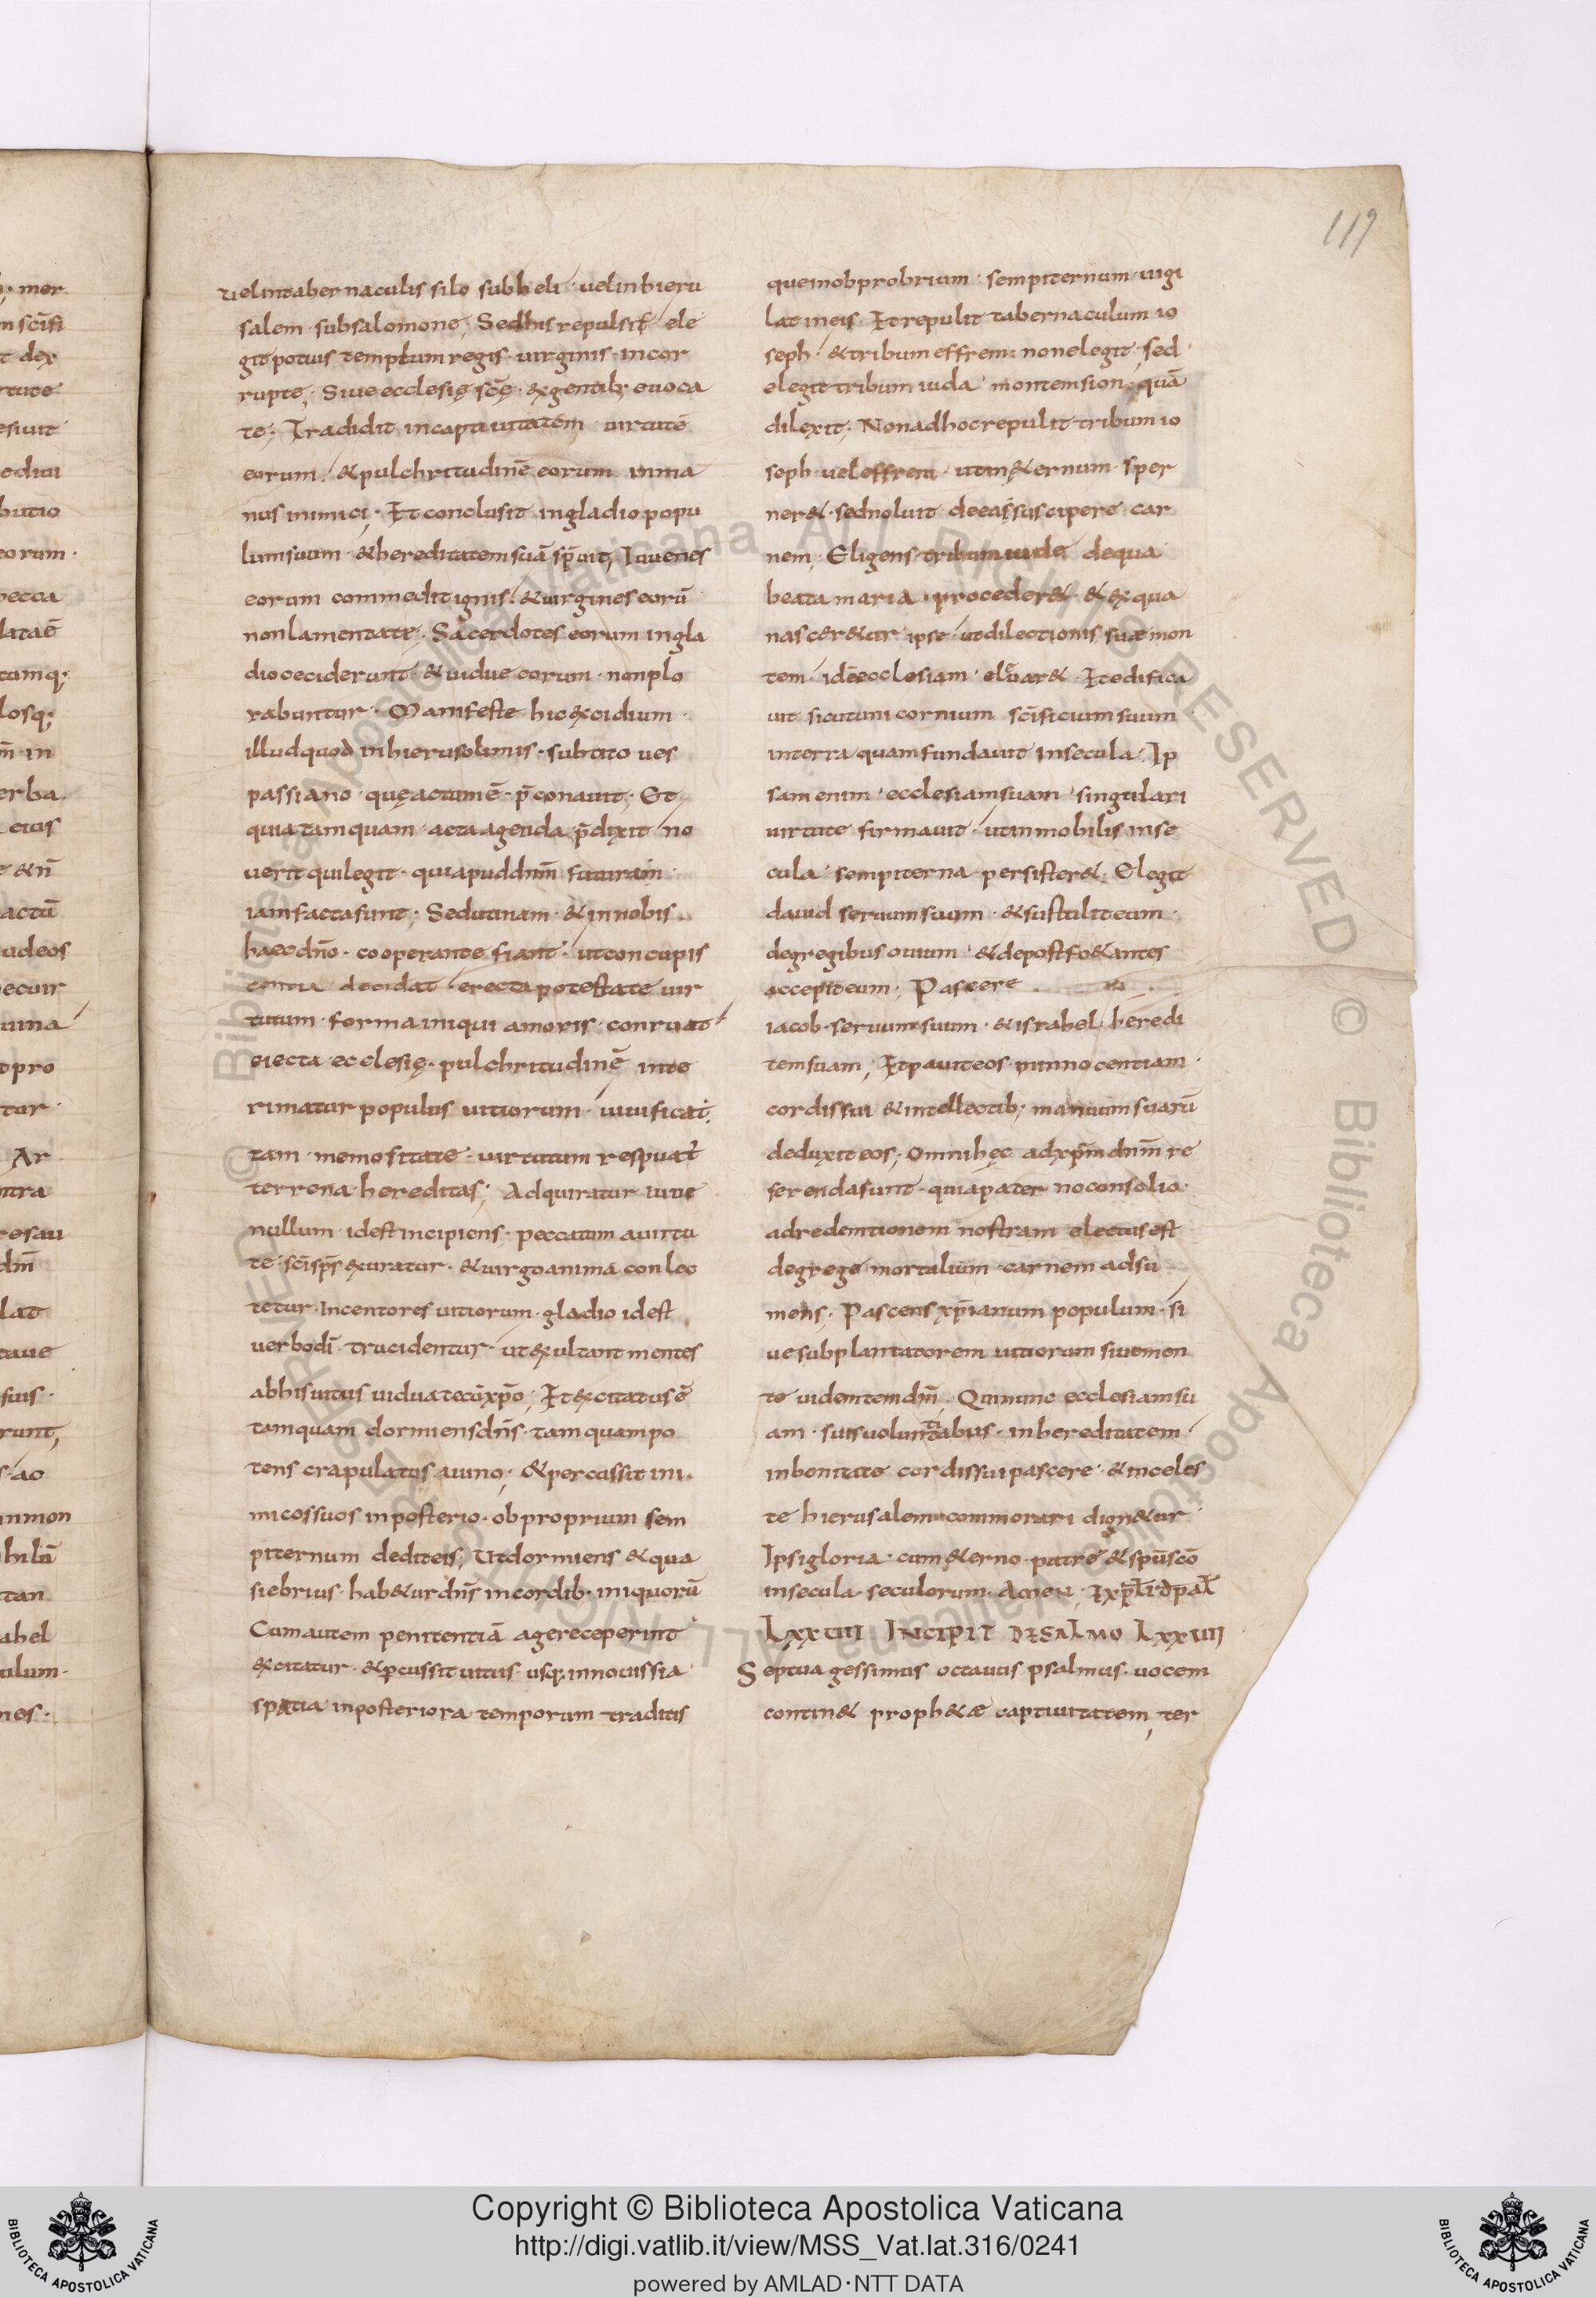 119
uelintabernaculis silo subheli · uelinhieru
salem · subsalomone; Sedhis repulsit ele
git potius templum regis · uirginis · incor
rupte; Siue ecclesię scę̄ · exgentib; euoca
te; Tradidit incaptiuitatem uirtutē
eorum · & pulchritudinē eorum inma
nus inimici; Et conclusit ingladio popu
lumsuum · & hereditatemsuā sp̄uit; Iuuenes
eorum commedit ignis · & uirgines eorū
nonlamentate; Sacerdotes eorum ingla
dioceciderunt · & uidue eorum · nonplo
rabuntur · Manifeste hic excidium
illudquod inhierusolimis · subtito ues
passiano · quęactumē · p̄conauit; Et
quia tamquam · acta agenda p̄dixit no
uerit quilegit · quiapuddnm̄ futuram
iamfactasunt; Sedutinam · & innobis
haecdn̄o · cooperante fiant · utconcupis
centia decidat · erecta potestate uir
tutum · forma iniqui amoris · conruat
eiecta ecclesię · pulchritudinē inte
rimatur populus uitiorum · uiuificat;
tam memositate · uirtutum respuat
terrena hereditas; Adquiratur iuue
nullum idest incipiens · peccatum auirtu
te · scīsps̄ exuratur · & uirgoanima conlec
tetur · Incentores uitiorum · gladio idest
uerbodī · trucidentur · ut exultant mentes
abhisuitiis uiduatecūxp̄o; Et excitatusē
tamquam dormiensdn̄s · tamquampo
tens crapulatus auino; & percussit ini
micossuos inposterio · obproprium sem
piternum dediteis; Utdormiens & qua
siebrius · hab&urdn̄s incordib · iniquorū
Cumautem penitentiā agereceperint
excitatur · & p̄cussit uitiis usq; innouissia
spatia inposteriora temporum traditis
queinobprobrium · sempiternum · uigi
lat ineis · Et repulit tabernaculum io
seph · & tribum effrem · nonelegit · sed
elegit tribum iuda · montemsion · quā
dilexit; Nonadhocrepulit tribum io
seph · uel effrem · utin&ernum · sper
ner& · sednoluit deeassuscipere car
nem; Eligens tribum iude dequa
beata maria · proceder& · & exqua
nascer&ur ipse · utdilectionis suae mon
tem · idēecclesiam · eleuar& · Et edifica
uit sicutunicornium scīficiumsuum
interra quamfundauit insecula · Ip
sam enim · ecclesiamsuam · singulari
uirtute firmauit · utinmobilis inse
cula · sempiterna · persister&; Elegit
dauid seruumsuum · & sustulit eum ·
degregibus ouium · & depostfo&antes
accepiteum; Pascere
iacob · seruumsuum · & israhel heredi
temsuam; Et pauiteos · ininnocentiam ·
cordissui & intellectib; manuumsuarū
deduxit eos; Omnihęc adxp̄m dnm̄ re
ferendasunt · quiapater noconsolio ·
adredemtionem nostram electus est
degrege mortalium · carnem adsu
mens; Pascens xp̄ianum populum · si
uesubplantatorem uitiorum siuemen
te uidentemdm̄; Quinunc ecclesiamsu
am · suisuoluntatibus · inhereditatem
inbonitate cordissui pascere · & inceles
te hierusalem commorari dign&ur
Ipsigloria · cum &erno · patre & spūscō
insecula seculorum · Amen · Exp̄līt d̄psaL
LXXVIII INCIPIT DE PSALMO LXXVIII
Septua gessimus octauus psalmus · uocem
contin& proph&ae captiuitatem, ter
Copyright © Biblioteca Apostolica Vaticana
http://digi.vatlib.it/view/MSS_Vat.lat.316/0241
powered by AMLAD·NTT DATA